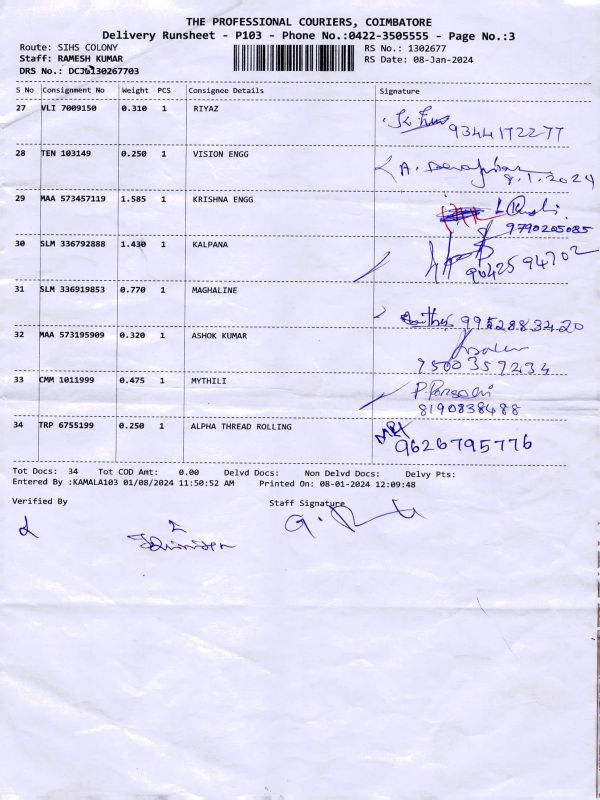 THE PROFESSIONAL COURIERS, COIMBATORE
Delivery Runsheet - P103 - Phone No.:0422-3505555 - Page No.:3
Route: SIHS COLONY RS No.: 1302677
Staff: RAMESH KUMAR RS Date: 08-Jan-2024
DRS No.:
S No Consignment No Weight PCS Consignee Details Signature
27 VLI 7009150 0.310 1 RIYAZ
9344172277
28 TEN 103149 0.250 1 VISION ENGG
8.1.2024
29 MAA 573457119 1.585 1 KRISHNA ENGG
9790205085
30 SLM 336792888 1.430 1 KALPANA
9042594702
31 SLM 336919853 0.770 1 MAGHALINE
32 MAA 573195909 0.320 1 ASHOK KUMAR
33 CMM 1011999 0.475 1 MYTHILI
8190838488
34 TRP 6755199 0.250 1 ALPHA THREAD ROLLING
9626795776
Tot Docs: 34 Tot COD Amt: 0.00 Delvd Docs: Non Delvd Docs: Delvy Pts:
Entered By :KAMALA103 01/08/2024 11:50:52 AM Printed On: 08-01-2024 12:09:48
Verified By Staff Signature